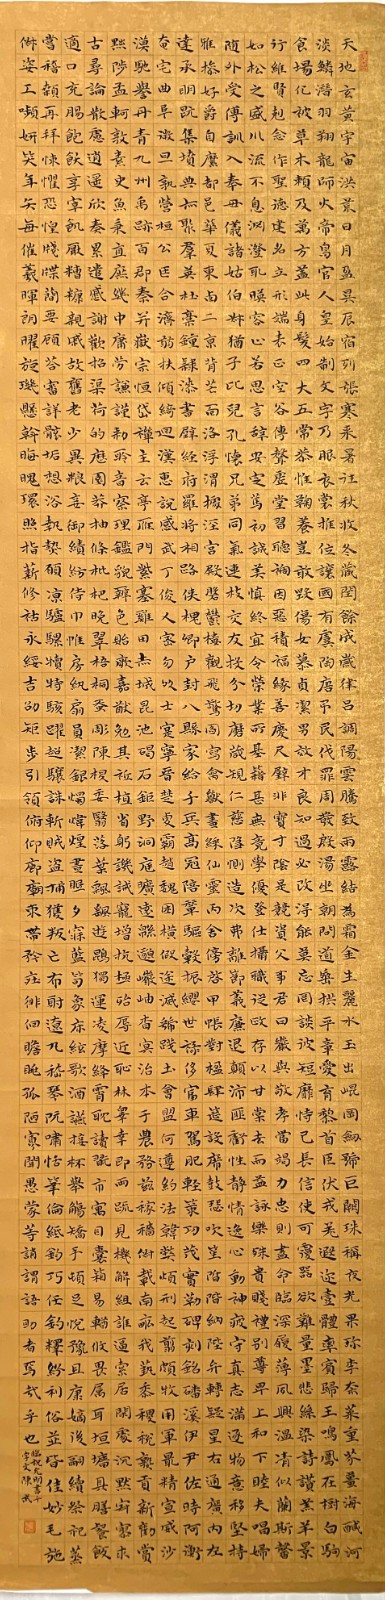 天地玄黃宇宙洪荒日月盈昃辰宿列張寒來暑往秋收冬藏閏餘成歲律呂調陽雲騰致雨露結為霜金生麗水玉出崐岡劍號巨闕珠稱夜光果珍李柰菜重芥薑海鹹河
淡鱗潛羽翔龍師火帝鳥官人皇始制文字乃服衣裳推位讓國有虞陶唐弔民伐罪周發殷湯坐朝問道垂拱平章愛育黎首臣伏戎羌遐邇壹體率賓歸王鳴鳳在樹白駒
食場化被草木賴及萬方蓋此身髮四大五常恭惟鞠養豈敢毀傷女慕貞潔男效才良知過必改得能莫忘罔談彼短靡恃己長信使可覆器欲難量墨悲絲染詩讚羔羊景
行維賢克念作聖德建名立形端表正空谷傳聲虛堂習聽禍因惡積福緣善慶尺璧非寶寸陰是競資父事君曰嚴與敬孝當竭力忠則盡命臨深履薄夙興溫凊似蘭斯馨
如松之盛川流不息淵澄取暎容止若思言辭安定篤初誠美慎終宜令榮業所基籍甚無竟學優登仕攝職從政存以甘棠去而益詠樂殊貴賤禮別尊卑上和下睦夫唱婦
隨外受傅訓入奉母儀諸姑伯叔猶子比兒孔懷兄弟同氣連枝交友投分切磨箴規仁慈隱惻造次弗離節義廉退顛沛匪虧性靜情逸心動神疲守真志滿逐物意移堅持
雅操好爵自縻都邑華夏東西二京背芒面洛浮渭據涇宮殿盤鬱樓觀飛驚圖寫禽獸畫綵仙靈丙舍傍啓甲帳對楹肆筵設席鼓瑟吹笙陞階納陛弁轉疑星右通廣內左
達承明既集墳典亦聚群英杜稾鍾隸漆書壁經府羅將相路俠槐卿戶封八縣家給千兵高冠陪輦驅轂振纓世祿侈富車駕肥輕策功茂實勒碑刻銘磻溪伊尹佐時阿衡
奄宅曲阜微旦孰營桓公匡合濟弱扶傾綺迴漢惠說感武丁俊乂密勿多士寔寧晉楚更霸趙魏困橫假途滅虢踐土會盟何遵約法韓弊煩刑起翦頗牧用軍最精宣威沙
漠馳譽丹青九州禹跡百郡秦并嶽宗恒岱禪主云亭雁門紫塞雞田赤城昆池碣石鉅野洞庭曠遠綿邈巖岫杳冥治本于農務茲稼穡俶載南畝我藝黍稷稅熟貢新勸賞
黜陟孟軻敦素史魚秉直庶幾中庸勞謙謹勑聆音察理鑑貌辨色貽厥嘉猷勉其祗植省躬譏誡寵增抗極殆辱近恥林皋幸即兩疏見機解組誰逼索居閑處沉默寂寥求
古尋論散慮逍遥欣奏累遣慼謝歡招渠荷的歷園莽抽條枇杷晚翠梧桐蚤彫陳根委翳落葉飄颻遊鵾獨運凌摩絳霄耽讀翫市寓目囊箱易輶攸畏屬耳垣墻具膳飡飯
適口充腸飽飫享宰飢厭糟糠親戚故舊老少異粮妾御績紡侍巾帷房紈扇圓潔銀燭煒煌晝眠夕寐藍筍象床絃歌酒讌接杯舉觴矯手頓足悅豫且康嫡後嗣續祭祀蒸
嘗稽顙再拜悚懼恐惶牋牒簡要顧答審詳骸垢想浴執熱願涼驢騾犢特駭躍超驤誅斬賊盜捕獲叛亡布射遼丸嵇琴阮嘯恬筆倫紙鈞巧任釣釋紛利俗並皆佳妙毛施
淑姿工嚬妍笑年矢每催羲暉朗曜旋璣懸斡晦魄環照指薪修祜永綏吉劭矩步引領俯仰廊廟束帶矜莊徘徊瞻眺孤陋寡聞愚蒙等誚謂語助者焉哉乎也
臨祝允明書千
字文陳武